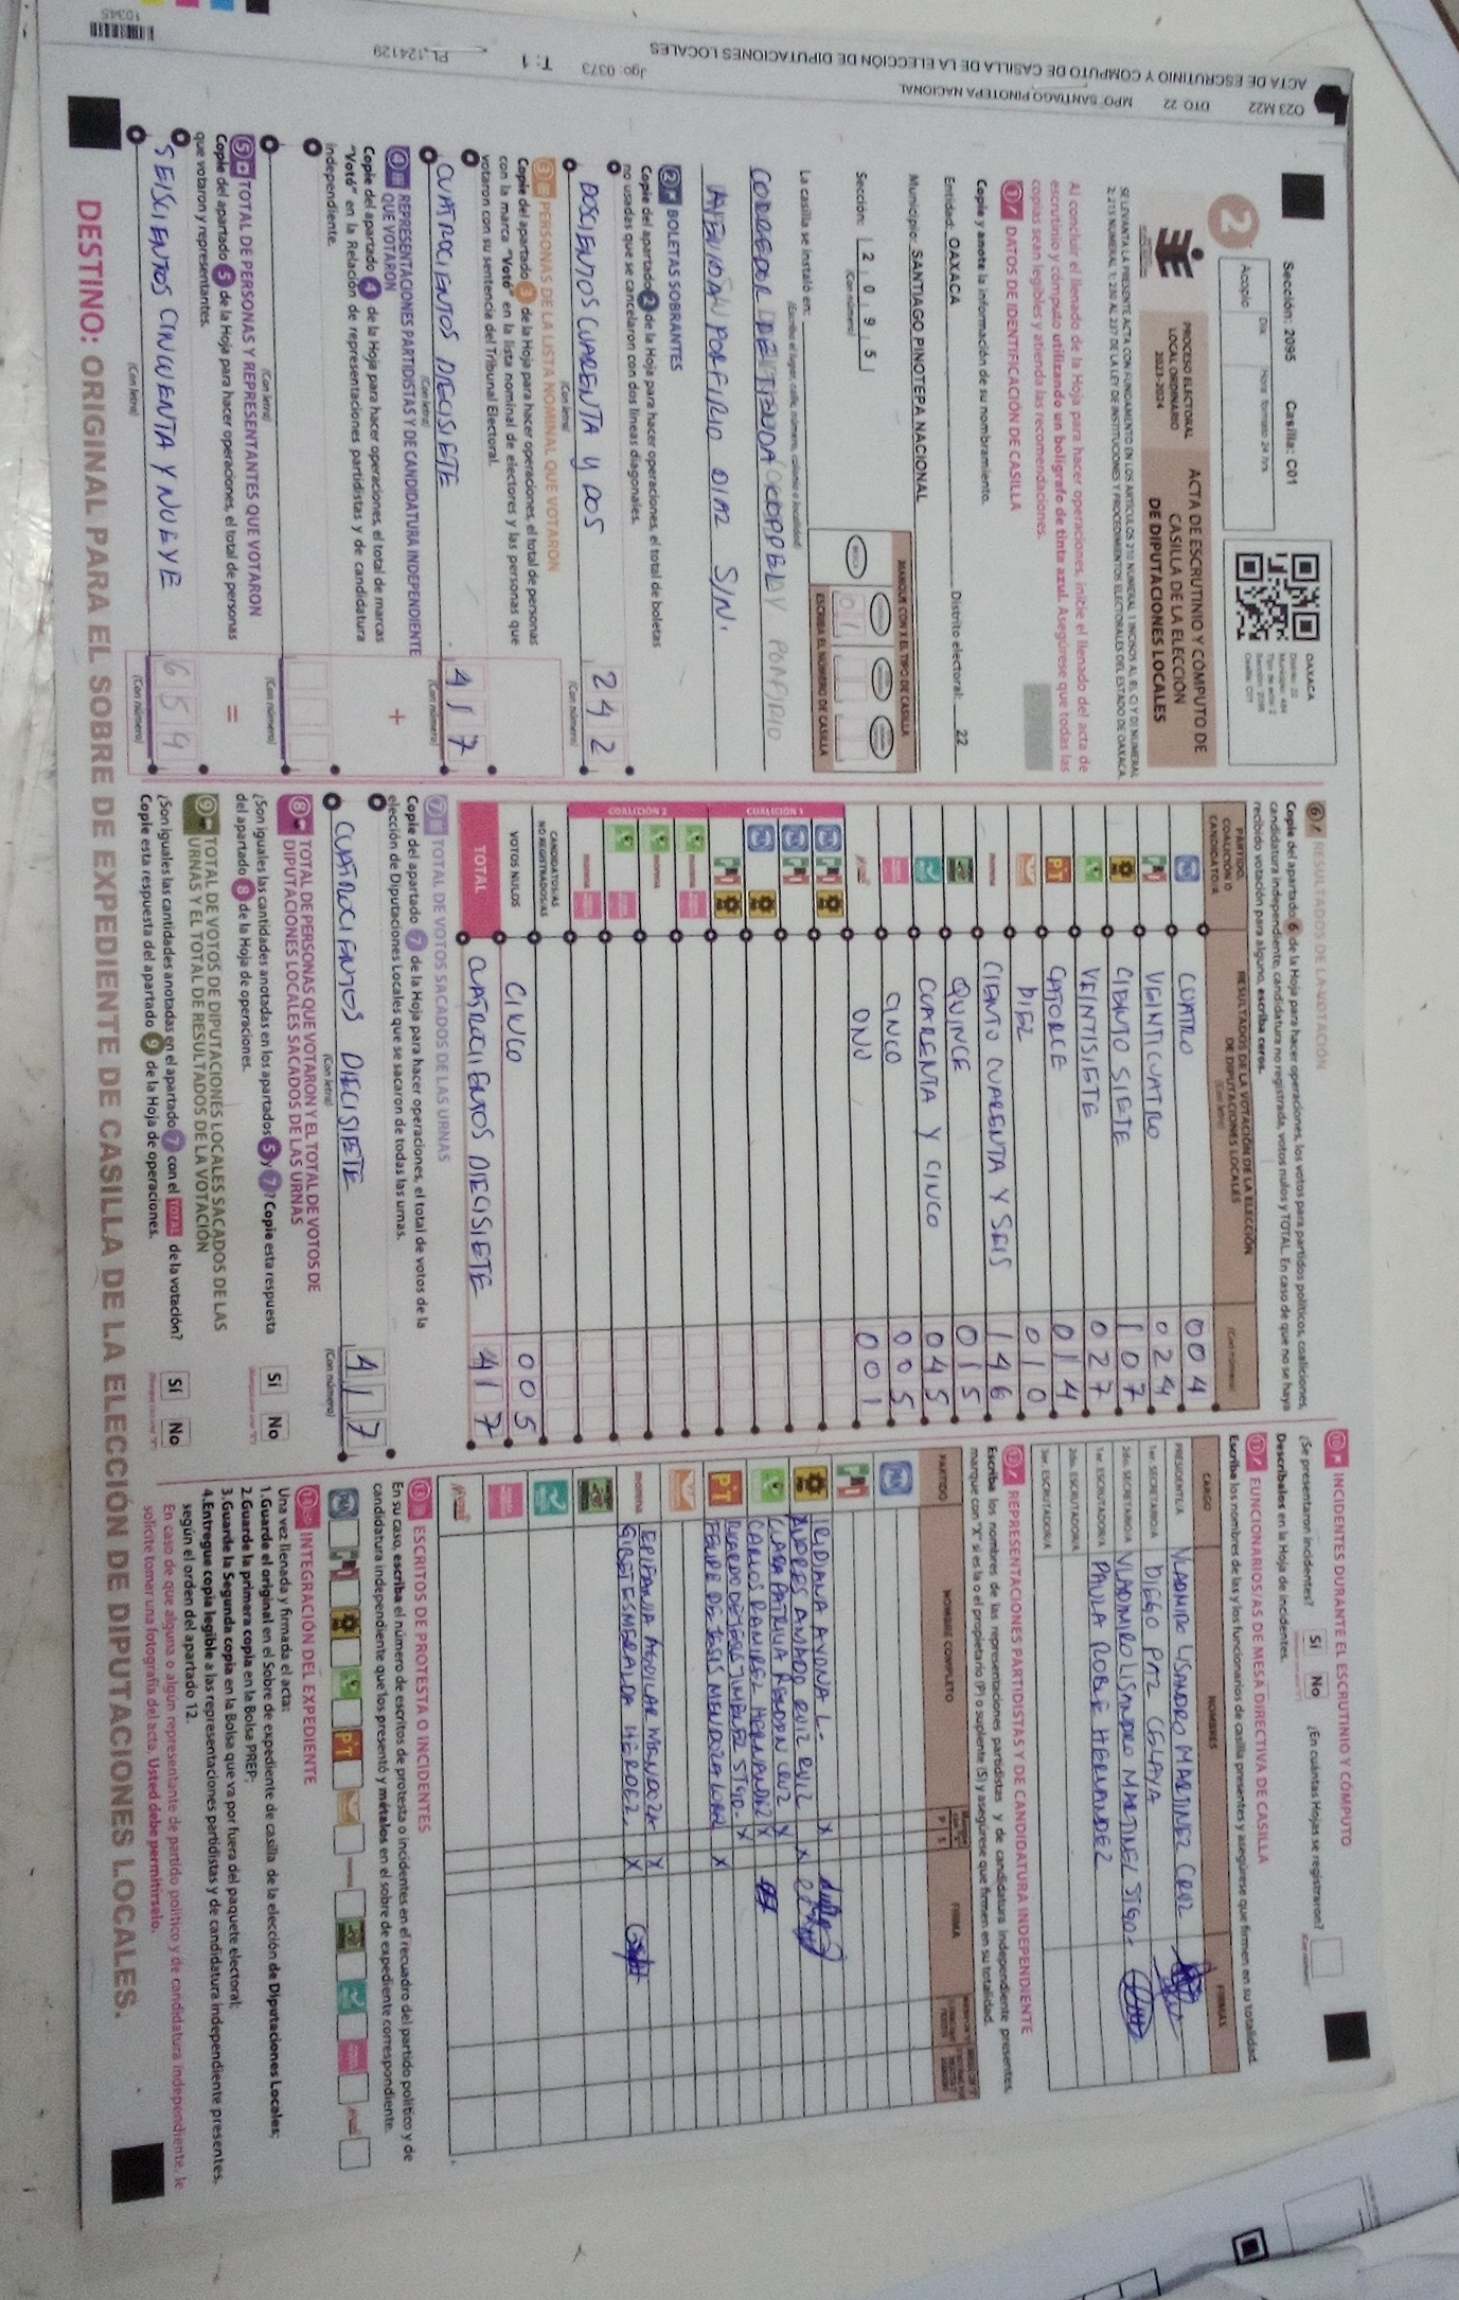 023 M22 DTO 22 MPO: SANTIAGO PINOTEPA NACIONAL
ACTA DE ESCRUTINIO Y CÓMPUTO DE CASILLA DE LA ELECCIÓN DE DIPUTACIONES LOCALES
Jgo: 0373
T: 1
PL: 124129
10345
Sección: 2095 Casilla: C01
2
Acopio
Día
Hora: formato 24 hrs.
OAXACA
PROCESO ELECTORAL
LOCAL ORDINARIO
2023-2024
ACTA DE ESCRUTINIO Y CÓMPUTO DE
CASILLA DE LA ELECCIÓN
DE DIPUTACIONES LOCALES
Al concluir el llenado de la Hoja para hacer operaciones, inicie el llenado del acta de
escrutinio y cómputo utilizando un bolígrafo de tinta azul. Asegúrese que todas las
copias sean legibles y atienda las recomendaciones.
1 DATOS DE IDENTIFICACIÓN DE CASILLA
Copie y anote la información de su nombramiento.
Entidad: OAXACA Distrito electoral: 22
Municipio: SANTIAGO PINOTEPA NACIONAL
Sección: 2 0 9 5
(Con número)
MARQUE CON X EL TIPO DE CASILLA
ESCRIBA EL NÚMERO DE CASILLA
La casilla se instaló en:
(Escriba el lugar, calle, número, colonia o localidad)
AVENIDA PORFIRIO DIAZ S/N.
2 BOLETAS SOBRANTES
Copie del apartado 2 de la Hoja para hacer operaciones, el total de boletas
no usadas que se cancelaron con dos líneas diagonales.
DOSCIENTOS CUARENTA Y DOS 242
(Con letra) (Con número)
3 PERSONAS DE LA LISTA NOMINAL QUE VOTARON
Copie del apartado 3 de la Hoja para hacer operaciones, el total de personas
con la marca "Votó" en la lista nominal de electores y las personas que
votaron con su sentencia del Tribunal Electoral.
CUATROCIENTOS DIECISIETE 417
(Con letra) (Con número)
4 REPRESENTACIONES PARTIDISTAS Y DE CANDIDATURA INDEPENDIENTE
QUE VOTARON
+
Copie del apartado 4 de la Hoja para hacer operaciones, el total de marcas
"Votó" en la Relación de representaciones partidistas y de candidatura
independiente.
(Con letra) (Con número)
5 TOTAL DE PERSONAS Y REPRESENTANTES QUE VOTARON
=
Copie del apartado 5 de la Hoja para hacer operaciones, el total de personas
que votaron y representantes.
SEISCIENTOS CINCUENTA Y NUEVE 659
(Con letra) (Con número)
6 RESULTADOS DE LA VOTACIÓN
Copie del apartado 6 de la Hoja para hacer operaciones, los votos para partidos políticos, coaliciones,
candidatura independiente, candidatura no registrada, votos nulos y TOTAL. En caso de que no se haya
recibido votación para alguno, escriba ceros.
PARTIDO, COALICIÓN O CANDIDATO/A
RESULTADOS DE LA VOTACIÓN DE LA ELECCIÓN
DE DIPUTACIONES LOCALES
(Con letra)
(Con número)
PAN CUATRO 004
PRI VEINTICUATRO 024
CIENTO SIETE 107
VEINTISIETE 027
PT CATORCE 014
DIEZ 010
morena CIENTO CUARENTA Y SEIS 146
QUINCE 015
CUARENTA Y CINCO 045
CINCO 005
UNO 001
COALICIÓN 1
COALICIÓN 2
CANDIDATOS/AS
NO REGISTRADOS/AS
VOTOS NULOS CINCO 005
TOTAL CUATROCIENTOS DIECISIETE 417
7 TOTAL DE VOTOS SACADOS DE LAS URNAS
Copie del apartado 7 de la Hoja para hacer operaciones, el total de votos de la
elección de Diputaciones Locales que se sacaron de todas las urnas.
CUATROCIENTOS DIECISIETE 417
(Con letra) (Con número)
8 TOTAL DE PERSONAS QUE VOTARON Y EL TOTAL DE VOTOS DE
DIPUTACIONES LOCALES SACADOS DE LAS URNAS
¿Son iguales las cantidades anotadas en los apartados 5 y 7? Copie esta respuesta
del apartado 8 de la Hoja de operaciones.
Sí No
9 TOTAL DE VOTOS DE DIPUTACIONES LOCALES SACADOS DE LAS
URNAS Y EL TOTAL DE RESULTADOS DE LA VOTACIÓN
¿Son iguales las cantidades anotadas en el apartado 7 con el TOTAL de la votación?
Copie esta respuesta del apartado 9 de la Hoja de operaciones.
Sí No
10 INCIDENTES DURANTE EL ESCRUTINIO Y CÓMPUTO
¿Se presentaron incidentes? Sí No ¿En cuántas Hojas se registraron?
Descríbalos en la Hoja de incidentes.
11 FUNCIONARIOS/AS DE MESA DIRECTIVA DE CASILLA
Escriba los nombres de las y los funcionarios de casilla presentes y asegúrese que firmen en su totalidad.
CARGO NOMBRES FIRMAS
PRESIDENTE/A VLADIMIRO LISANDRO MARTINEZ CRUZ
1er. SECRETARIO/A DIEGO PAZ CELAYA
2do. SECRETARIO/A VLADIMIRO LISANDRO MARTINEZ STGO.
1er. ESCRUTADOR/A PAULA ROBLE HERNANDEZ
2do. ESCRUTADOR/A
3er. ESCRUTADOR/A
12 REPRESENTACIONES PARTIDISTAS Y DE CANDIDATURA INDEPENDIENTE
Escriba los nombres de las representaciones partidistas y de candidatura independiente presentes,
marque con "X" si es la o el propietario (P) o suplente (S) y asegúrese que firmen en su totalidad.
PARTIDO NOMBRE COMPLETO P S FIRMA
IRIDIANA AYONA L. X
ANDRES AMADO RUIZ RUIZ X
CLARA PATRICIA REGDEN CRUZ X
CARLOS RAMIREZ HERNANDEZ X
RICARDO DE JESUS JIMENEZ STGO. X
FELIPE DE JESUS MENDOZA X
EPIFANIA AGUILAR MENDOZA X
GIBET ESMERALDA X
13 ESCRITOS DE PROTESTA O INCIDENTES
En su caso, escriba el número de escritos de protesta o incidentes en el recuadro del partido político y de
candidatura independiente que los presentó y métalos en el sobre de expediente correspondiente.
INTEGRACIÓN DEL EXPEDIENTE
Una vez llenada y firmada el acta:
1.Guarde el original en el Sobre de expediente de casilla de la elección de Diputaciones Locales;
2.Guarde la primera copia en la Bolsa PREP;
3.Guarde la Segunda copia en la Bolsa que va por fuera del paquete electoral;
4.Entregue copia legible a las representaciones partidistas y de candidatura independiente presentes,
según el orden del apartado 12.
En caso de que alguna o algún representante de partido político y de candidatura independiente, le
solicite tomar una fotografía del acta. Usted debe permitírselo.
DESTINO: ORIGINAL PARA EL SOBRE DE EXPEDIENTE DE CASILLA DE LA ELECCIÓN DE DIPUTACIONES LOCALES.